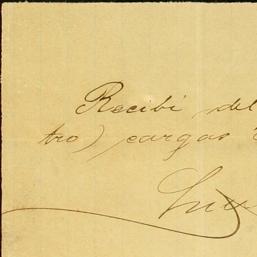 Recibi del
tro) cargas